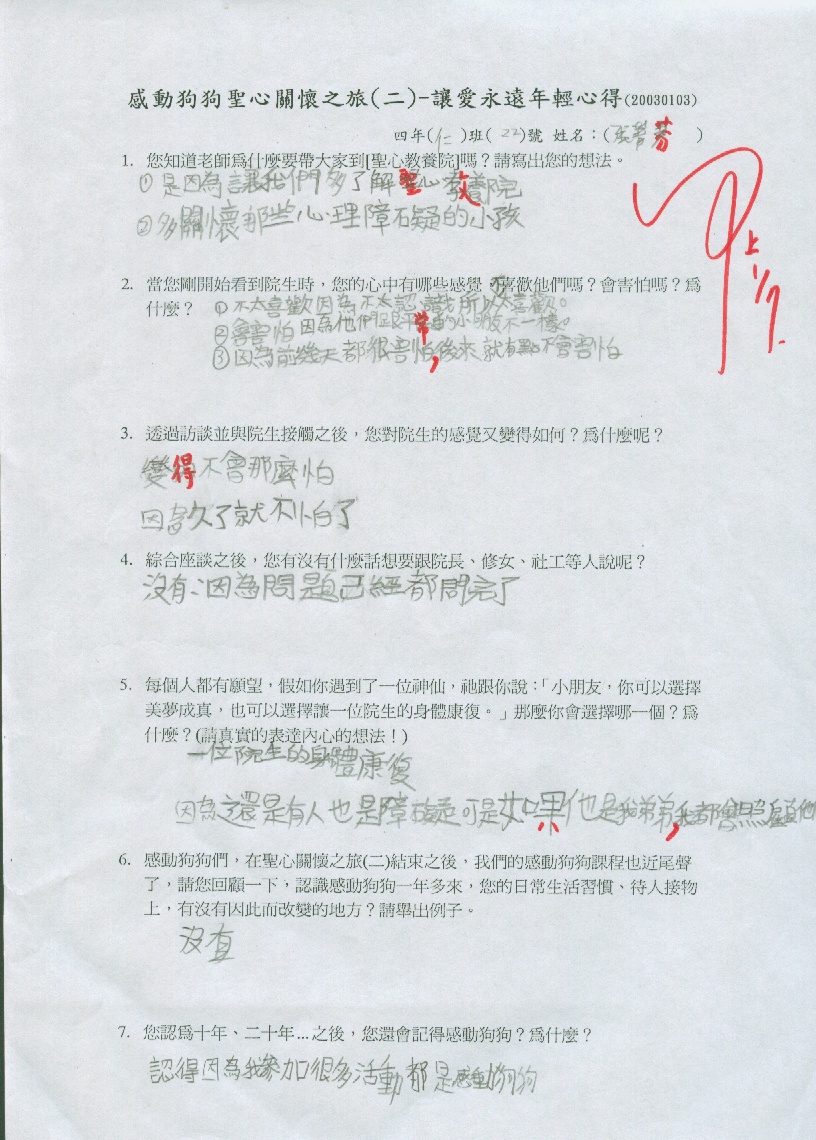 感動狗狗聖心關懷之旅(二)-讓愛永遠年輕心得(20030103)
四年(仁)班(22)號 姓名：(張 芬)
甲上 1/7.
1. 您知道老師爲什麼要帶大家到[聖心教養院]嗎？請寫出您的想法。
①是因為讓我們多了解聖心教養院
②多關懷那些心理障礙的小孩
2. 當您剛開始看到院生時，您的心中有哪些感覺 喜歡他們嗎？會害怕嗎？爲
什麼？ ①不太喜歡因為不太認識所以不太喜歡。
②會害怕因為他們跟平常的小朋友不一樣。
③因為前幾天都很害怕，後來就有點不會害怕
3. 透過訪談並與院生接觸之後，您對院生的感覺又變得如何？爲什麼呢？
變得不會那麼怕
因為久了就不怕了
4. 綜合座談之後，您有沒有什麼話想要跟院長、修女、社工等人說呢？
沒有、因為問題已經都問完了
5. 每個人都有願望，假如你遇到了一位神仙，祂跟你說：「小朋友，你可以選擇
美夢成真，也可以選擇讓一位院生的身體康復。」那麼你會選擇哪一個？爲
什麼？(請真實的表達內心的想法！)
一位院生的身體康復
因為還是有人也是障礙可是如果他是我弟弟，我都會照顧他
6. 感動狗狗們，在聖心關懷之旅(二)結束之後，我們的感動狗狗課程也近尾聲
了，請您回顧一下，認識感動狗狗一年多來，您的日常生活習慣、待人接物
上，有沒有因此而改變的地方？請舉出例子。
沒有
7. 您認爲十年、二十年...之後，您還會記得感動狗狗？爲什麼？
認得因為我參加很多活動都是感動狗狗